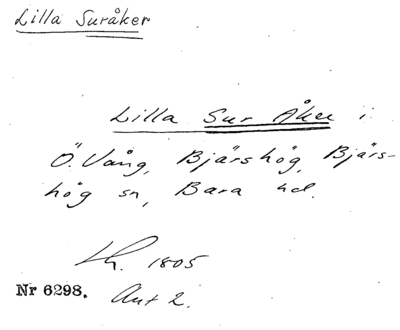 Lilla Suråker
Lilla Sur Åker i
Ö. Vång, Bjärshög, Bjärs-
hög sn, Bara hd.
Lh. 1805
Nr 6298. Akt 2.